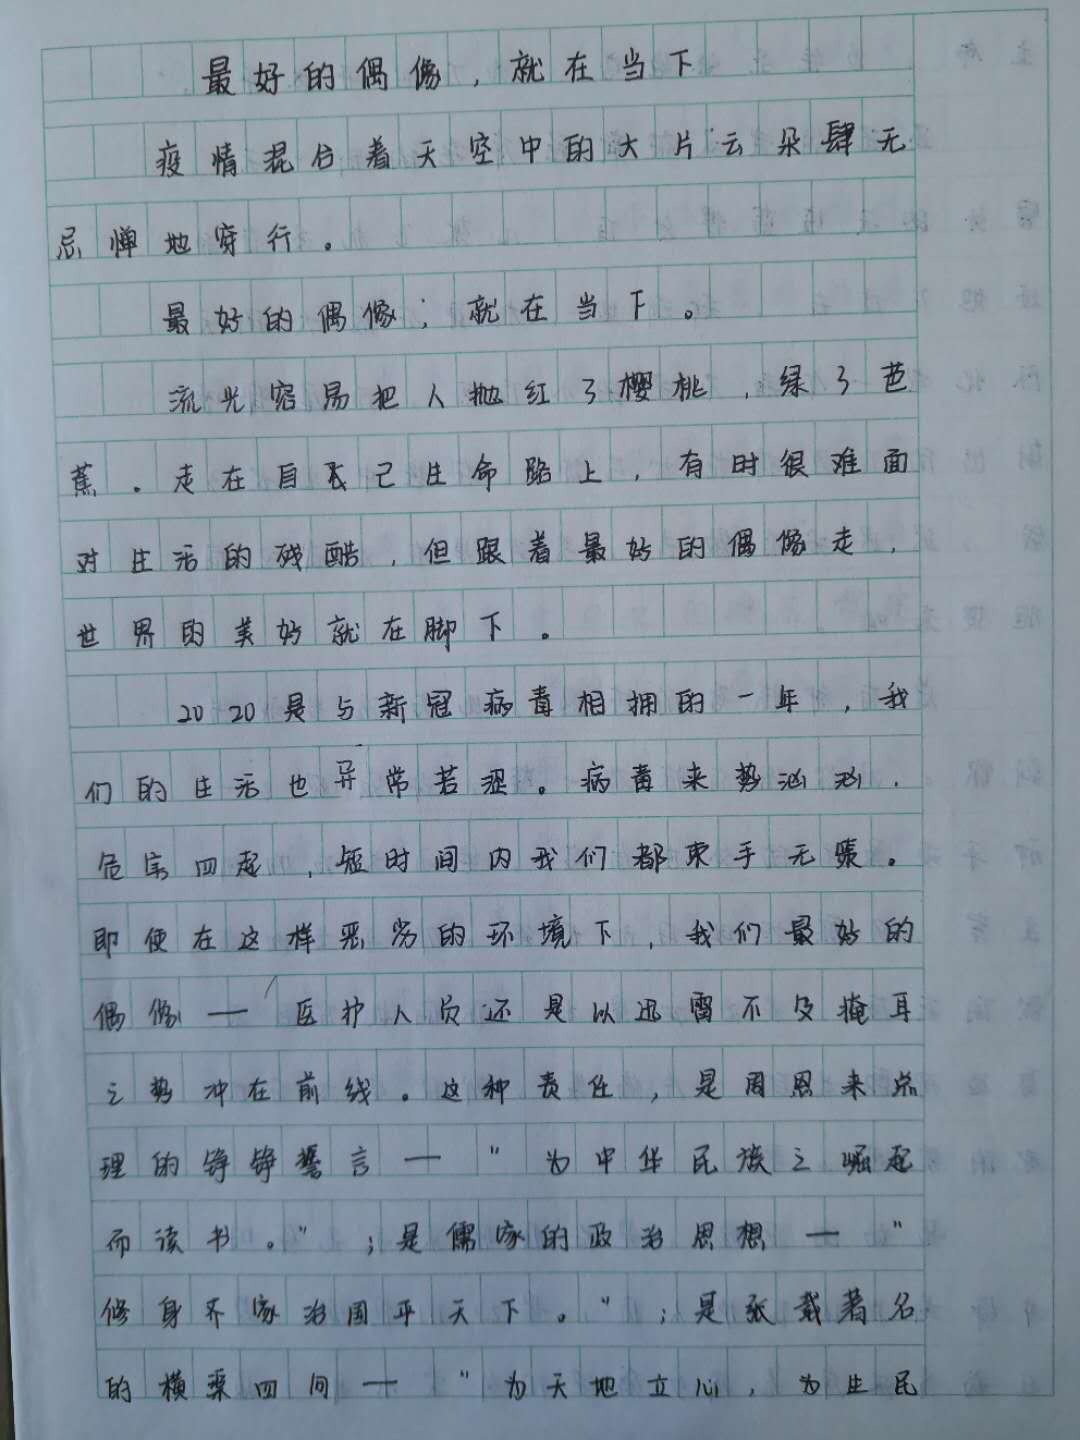 最好的偶像，就在当下
疫情混合着天空中的大片云朵肆无
忌惮地穿行。
最好的偶像；就在当下。
流光容易把人抛红了樱桃，绿了芭
蕉。走在自己生命路上，有时很难面
对生活的残酷，但跟着最好的偶像走，
世界的美好就在脚下。
2020是与新冠病毒相拥的一年，我
们的生活也异常苦涩。病毒来势汹汹，
危害四起，短时间内我们都束手无策。
即使在这样恶劣的环境下，我们最好的
偶像——医护人员还是以迅雷不及掩耳
之势冲在前线。这种责任，是周恩来总
理的铮铮誓言——"为中华民族之崛起
而读书。"；是儒家的政治思想——"
修身齐家治国平天下。"；是张载著名
的横渠四句——"为天地立心，为生民